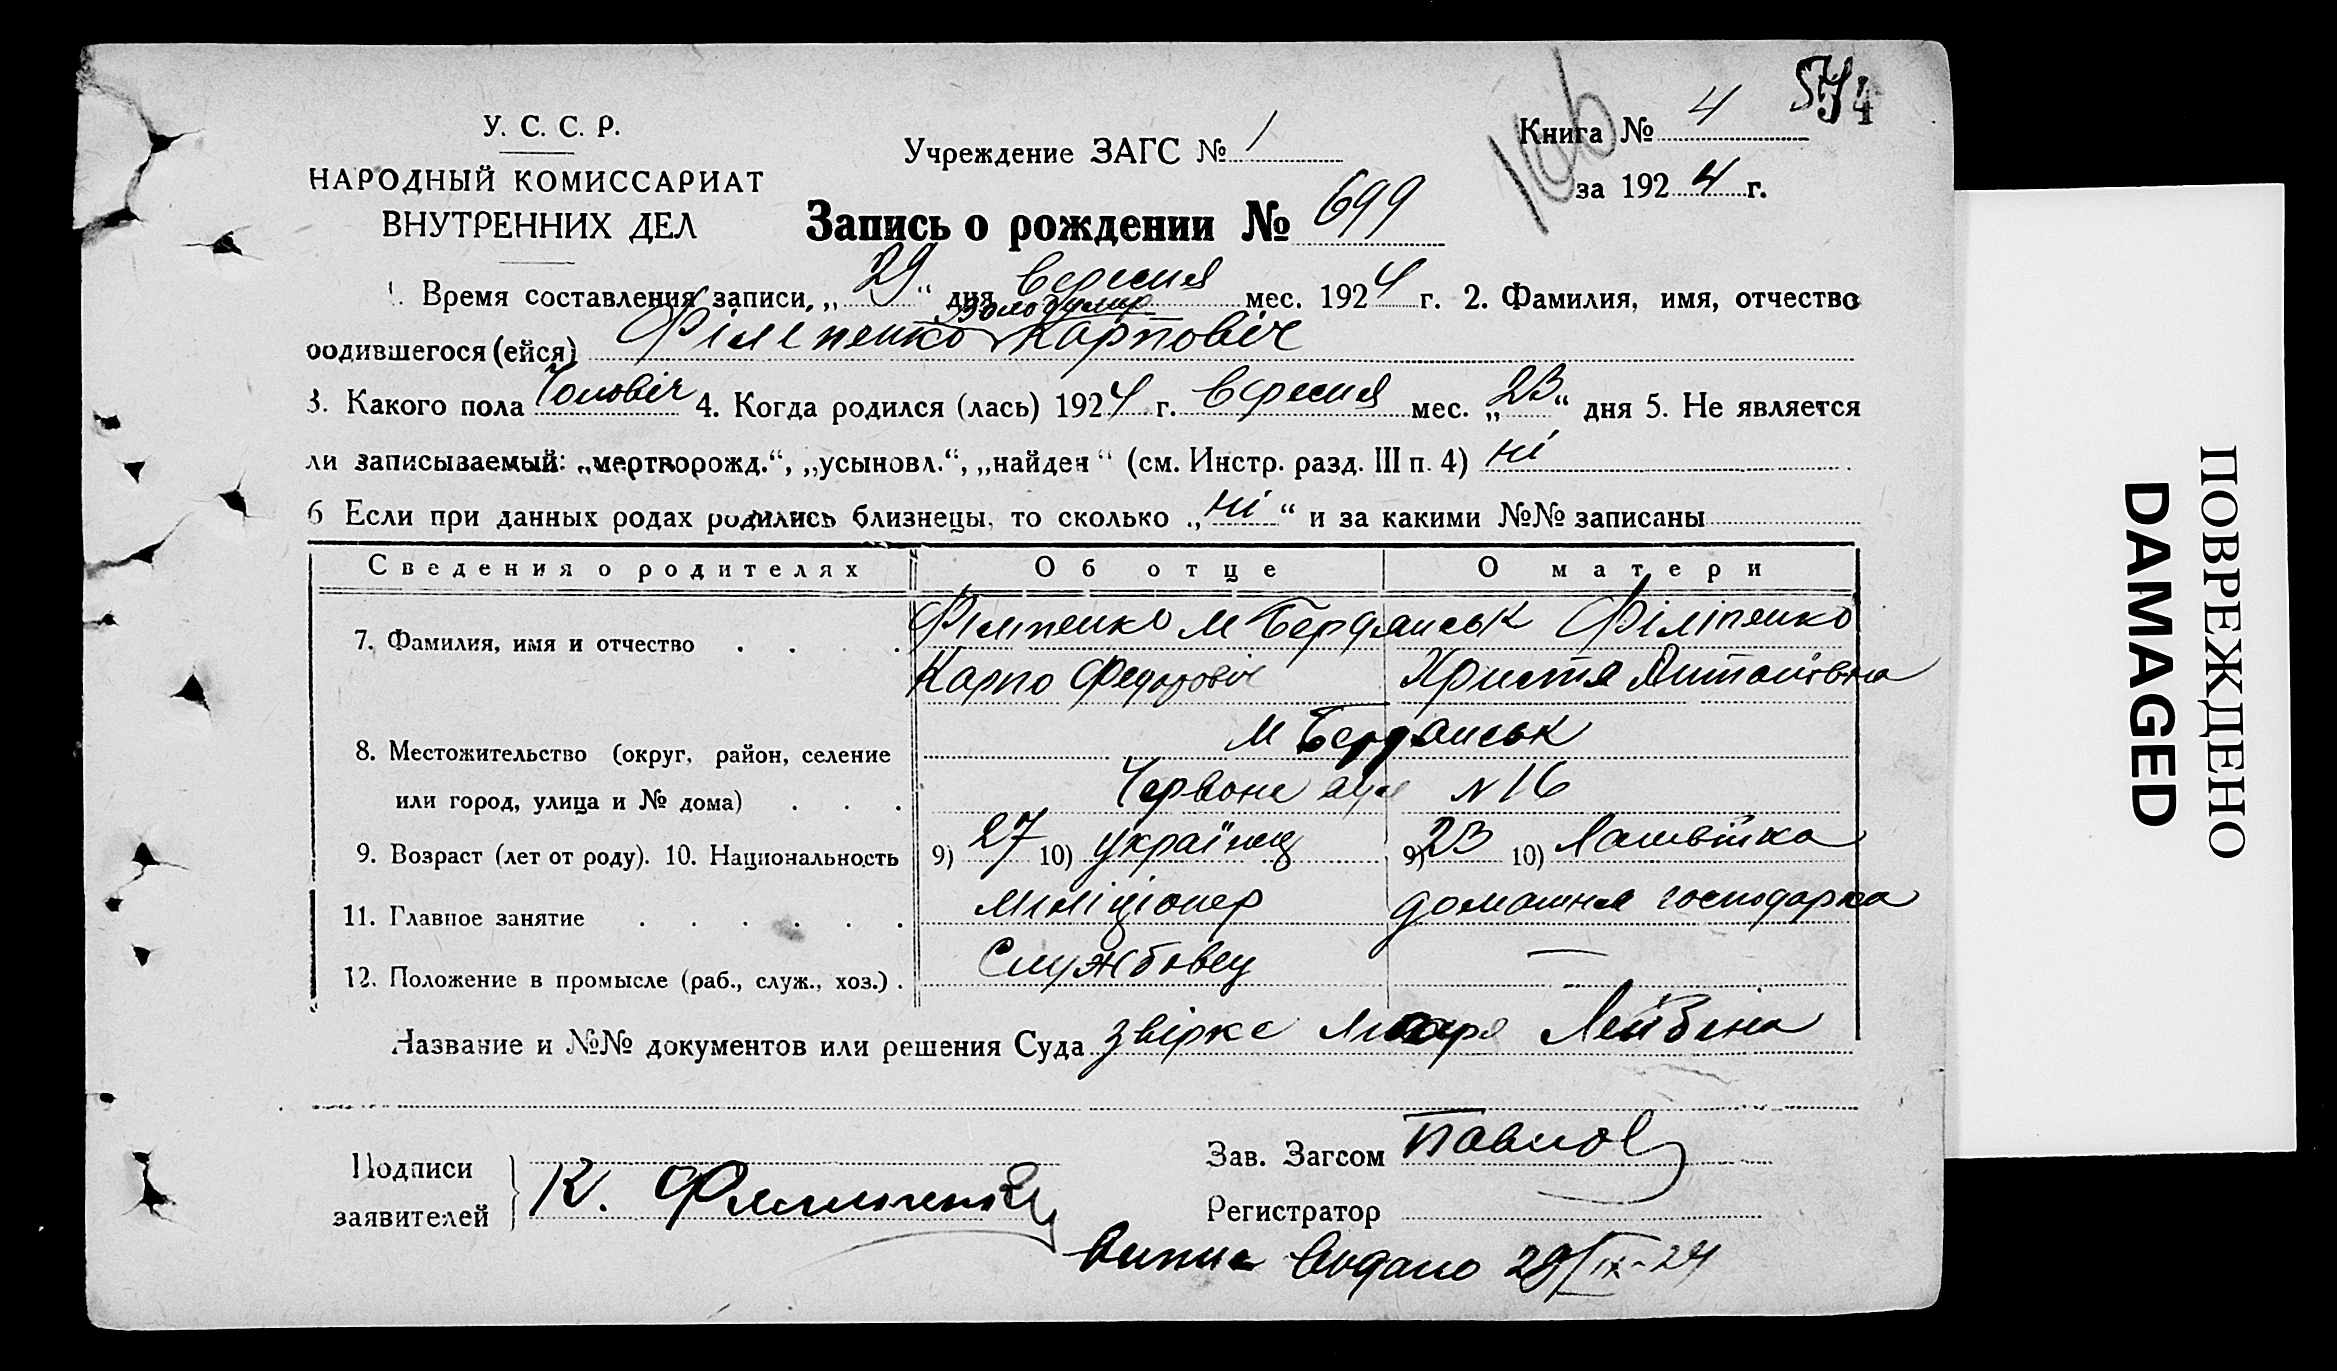 574
У. С. С. Р.
НАРОДНЫЙ КОМИССАРИАТ
ВНУТРЕННИХ ДЕЛ
Учреждение ЗАГС № 1
Книга № 4
за 1924 г.
Запись о рождении № 699
1. Время составления записи, „29“ дня вересня мес. 1924 г. 2. Фамилия, имя, отчество
Володумир
родившегося (ейся) Філіпенко Карповіч
3. Какого пола Чоловіч 4. Когда родился (лась) 1924 г. вересня мес. „23“ дня 5. Не является
ли записываемый: „мертворожд.“, „усыновл.“, „найден“ (см. Инстр. разд. III п. 4) ні
6 Если при данных родах родились близнецы, то сколько „ні“ и за какими №№ записаны
Сведения о родителях Об отце О матери
7. Фамилия, имя и отчество Філіпенко м Бердянськ Філіпенко
Карпо Федоровіч Христя Антонівна
8. Местожительство (округ, район, селение м Бердянськ
или город, улица и № дома) Червоне N 16
9. Возраст (лет от роду). 10. Национальность 9) 27 10) українец 9) 23 10) Латвійка
11. Главное занятие міліціонер домашня господарка
12. Положение в промысле (раб., служ., хоз.) Службовец —
Название и №№ документов или решения Суда звірка Лейбіна
Подписи
заявителей К. Филипенко
Зав. Загсом Павлов
Регистратор
Випис видано 29/IX-24
ПОВРЕЖДЕНО
DAMAGED